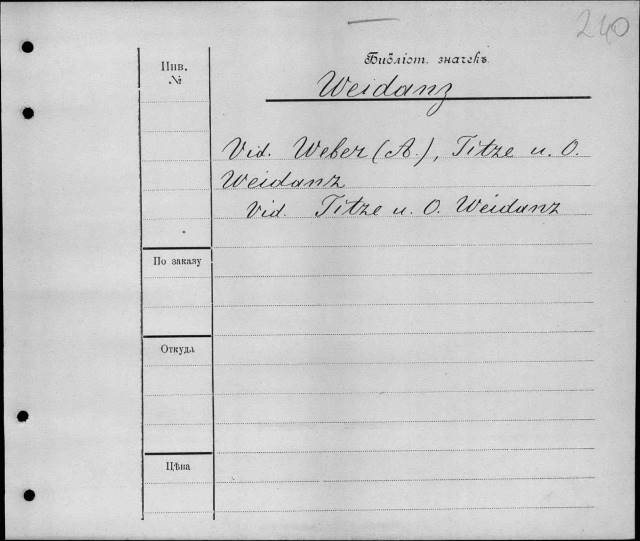 240
Библіот. значекъ
Инв.
№
Weidanz
Vid. Weber (A.), Titze u. O.
Weidanz
Vid. Titze u. O. Weidanz
По заказу
Откуда
Цѣна